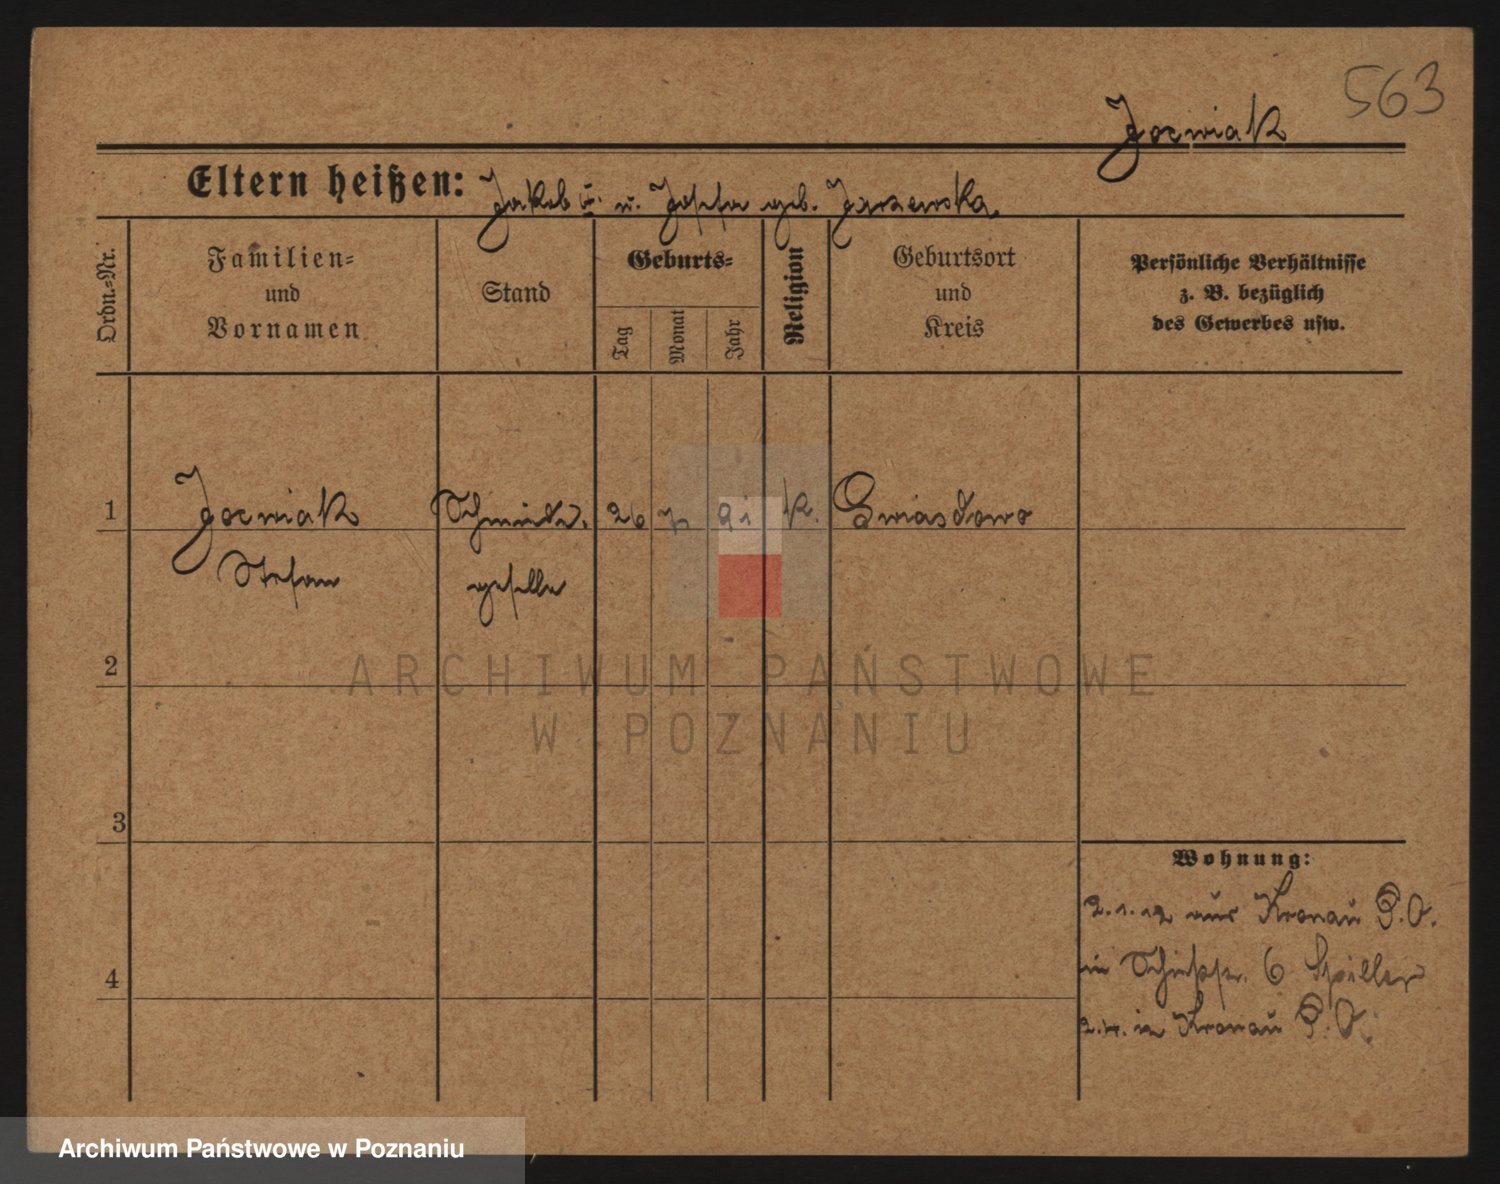 563
Jozwiak
Eltern heißen: Jakob u. Josefa geb. Jarzewska.
Ordn.=Nr.
Familien=
und
Vornamen
Stand
Geburts=
Tag
Monat
Jahr
Religion
Geburtsort
und
Kreis
Persönliche Verhältnisse
z. B. bezüglich
des Gewerbes usw.
1
Jozwiak
Schmiede
26
91
K.
Gwiasdowo
Stefan
geselle
2
3
4
Wohnung:
2.1.12 aus Kronau P.O.
in 6 Spiller
in Kronau P.O.
ARCHIWUM PAŃSTWOWE
W POZNANIU
Archiwum Państwowe w Poznaniu